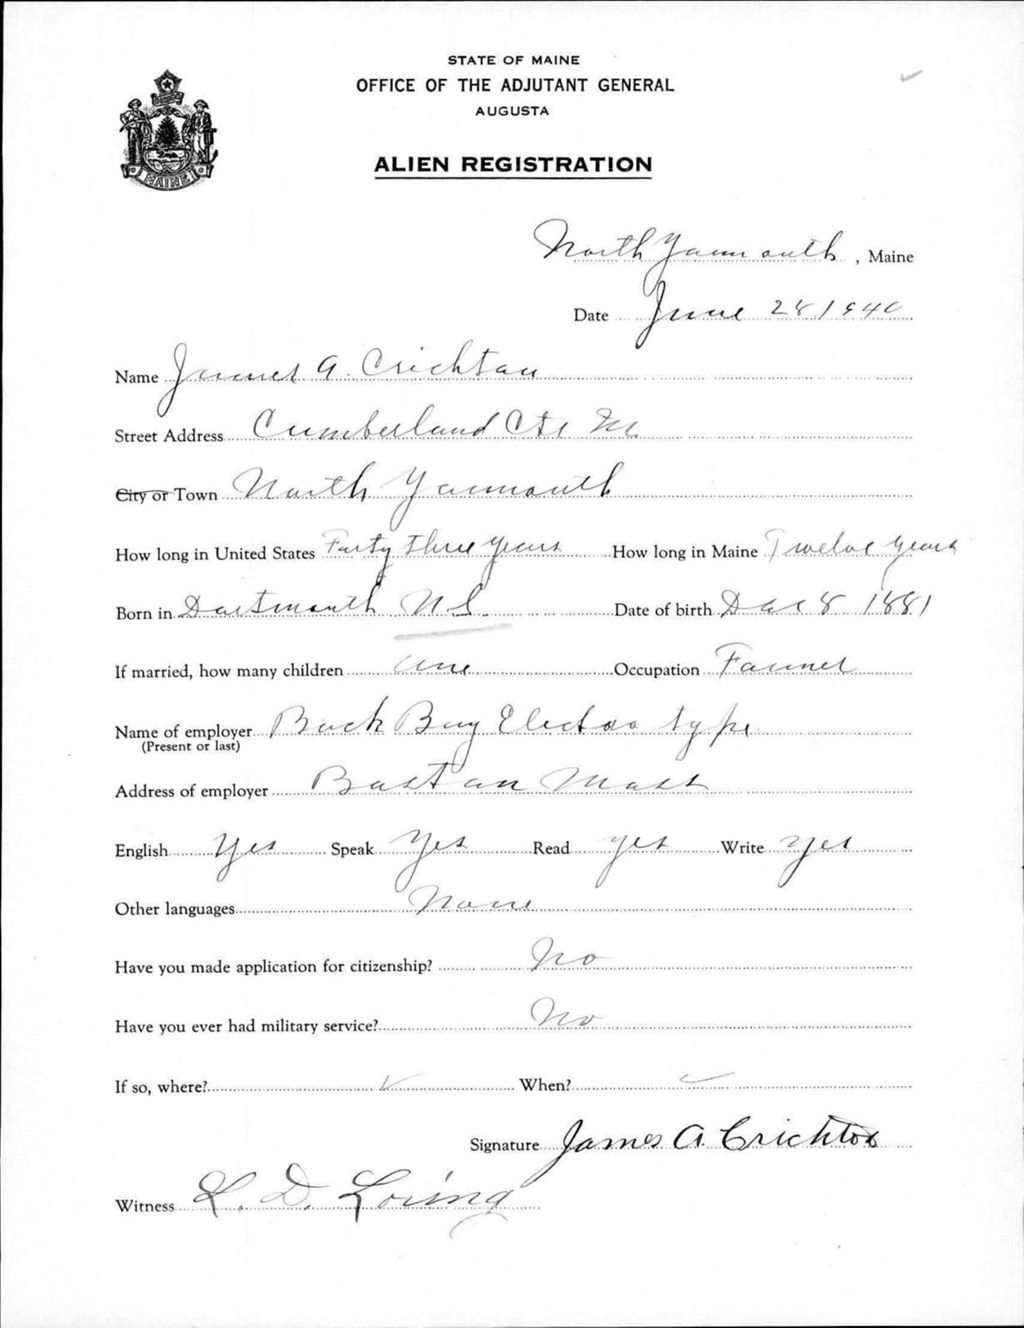 STATE OF MAINE
OFFICE OF THE ADJUTANT GENERAL
AUGUSTA
ALIEN REGISTRATION
MAINE
North Yarmouth, Maine
Date June 28 1940
Name James A. Crichton
Street Address Cumberland Ctr
City or Town North Yarmouth
How long in United States Forty three years How long in Maine Twelve years
Born in Dartmouth N.S. Date of birth 8 1881
If married, how many children one Occupation Farmer
Name of employer Back Bay Electro type
(Present or last)
Address of employer Boston Mass
English Yes Speak Yes Read yes Write yes
Other languages None
Have you made application for citizenship? No
Have you ever had military service? No
If so, where? When?
Signature James A. Crichton
Witness D. Loring